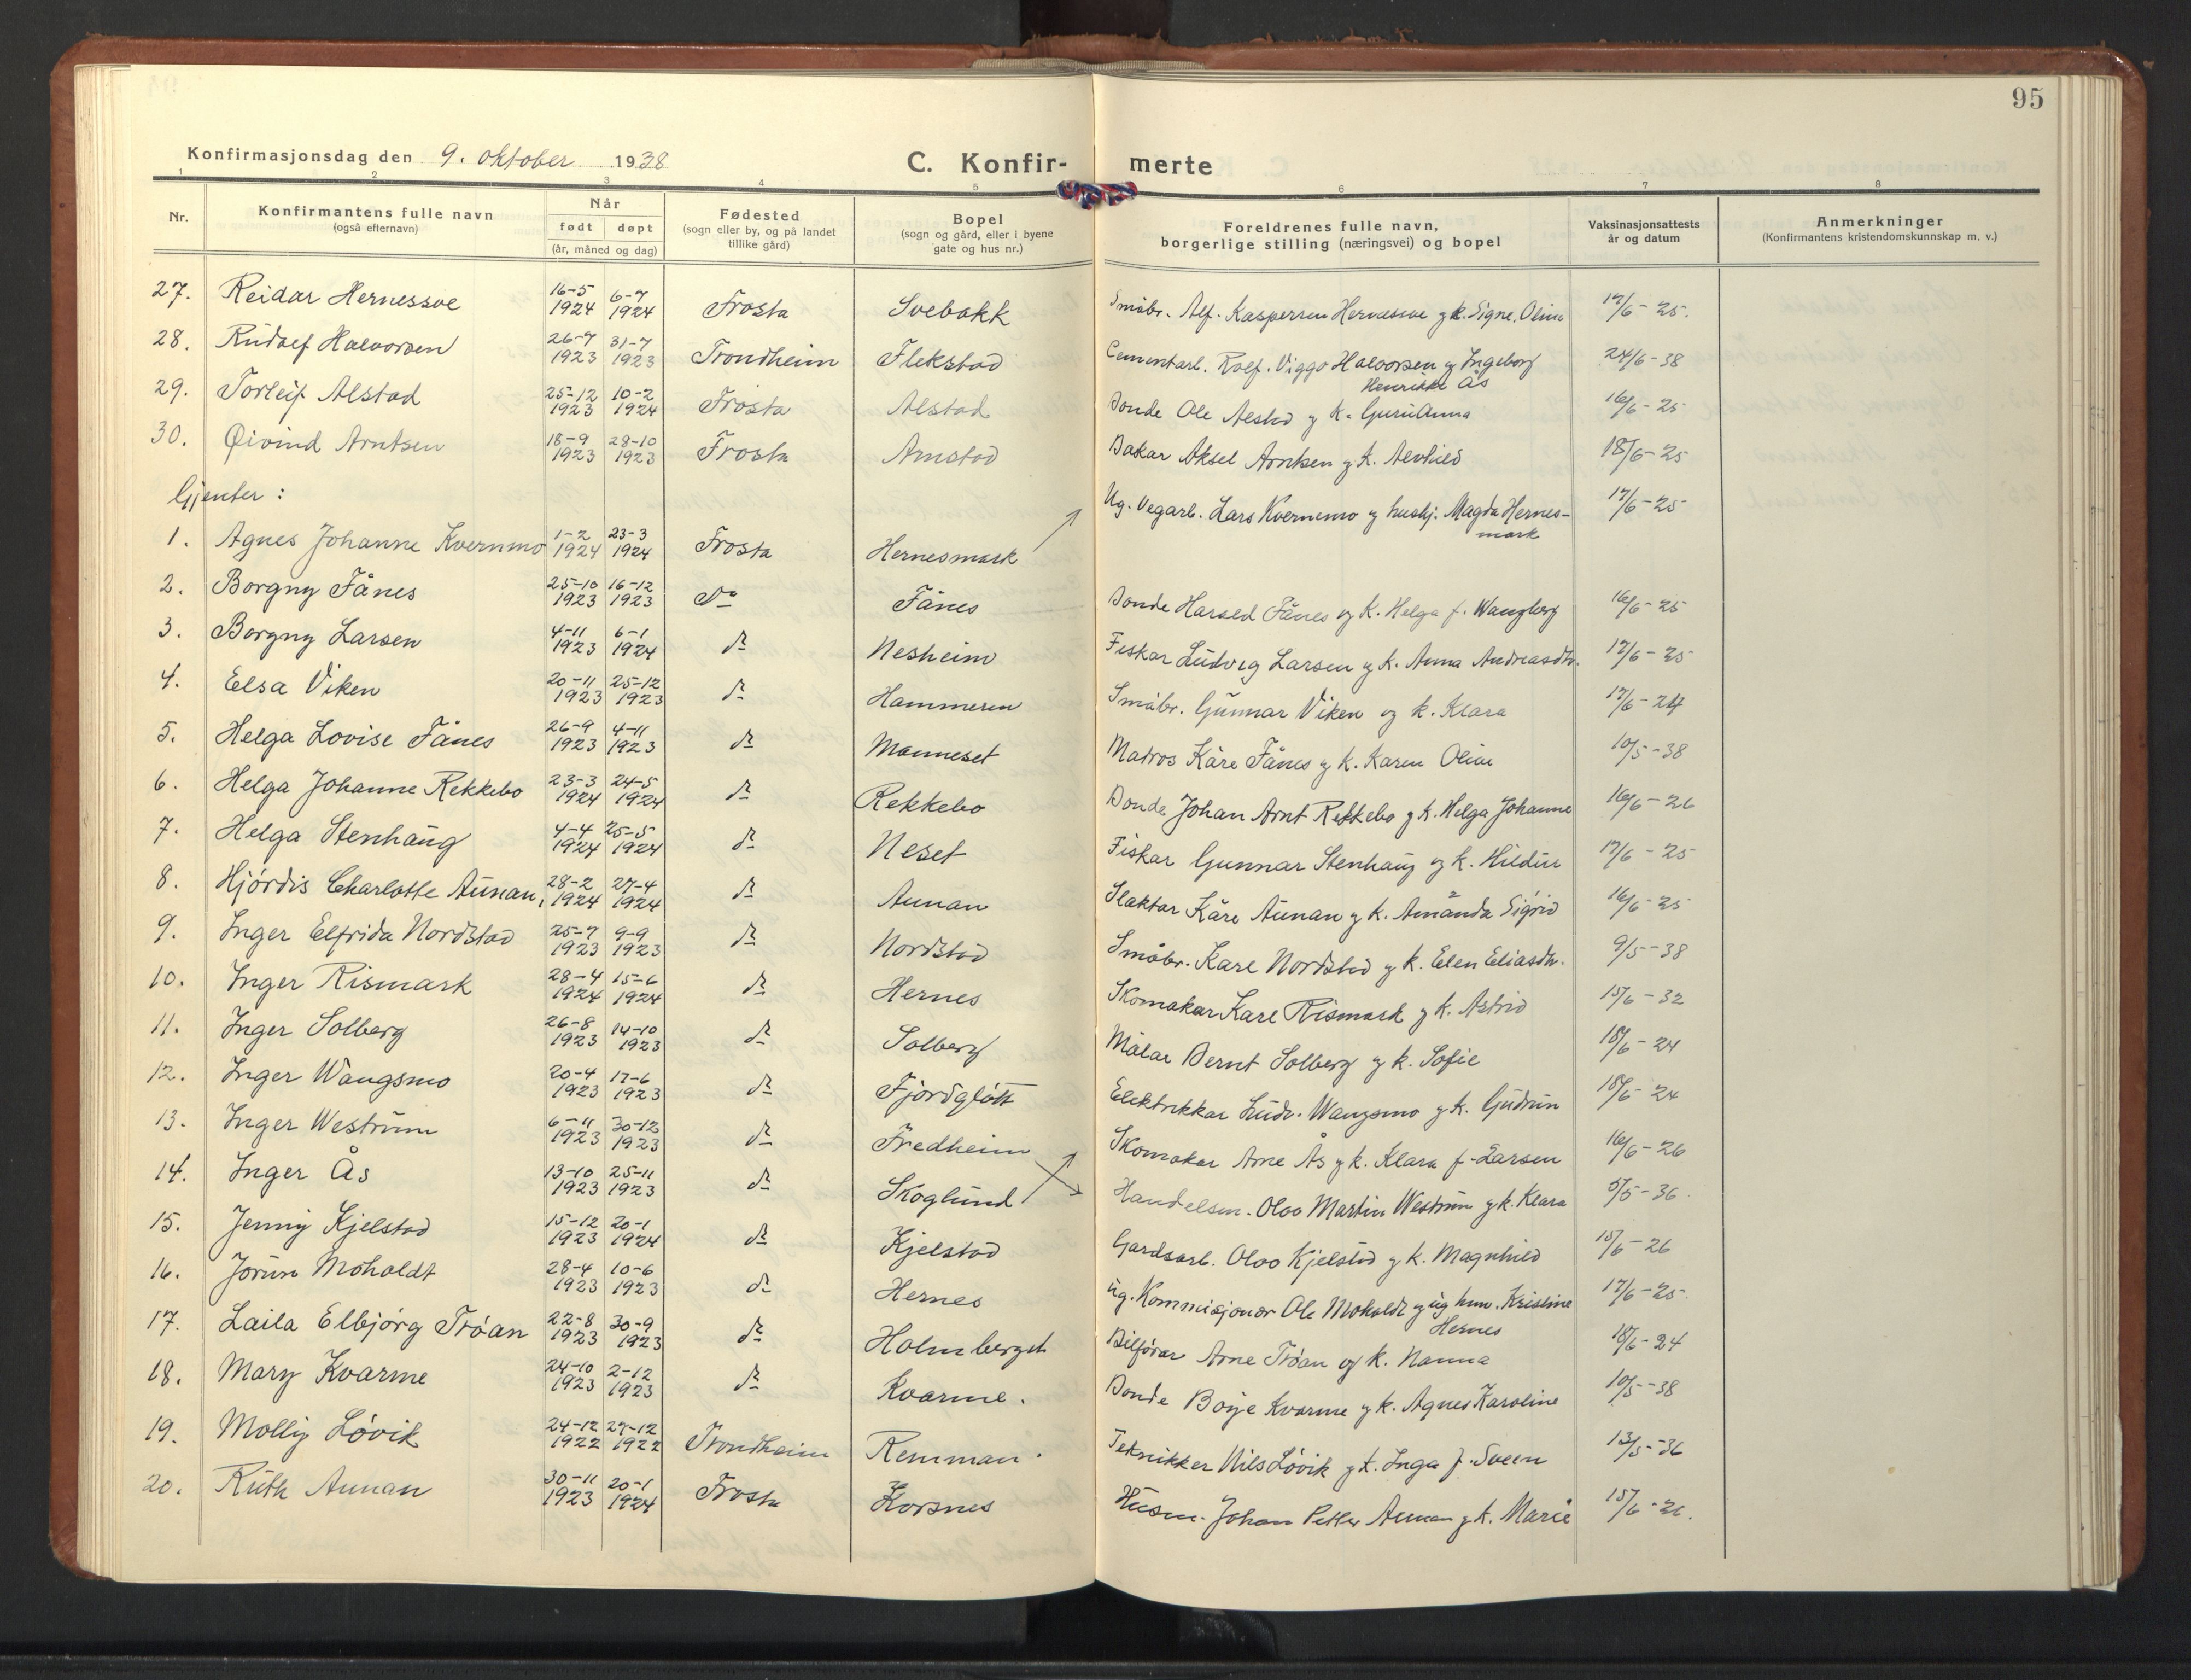 95
Konfirmasjonsdag den 9. oktober 1938
C. Konfir- merte
1 2 3 4 5 6 7 8
Nr. Konfirmantens fulle navn (også efternavn) Når født døpt (år, måned og dag) Fødested (sogn eller by, og på landet tillike gård) Bopel (sogn og gård, eller i byene gate og hus nr.) Foreldrenes fulle navn, borgerlige stilling (næringsvei) og bopel Vaksinasjonsattests år og datum Anmerkninger (Konfirmantens kristendomskunnskap m. v.)
27. Reidar Hernessve 16-5 1924 6-7 1924 Frosta Svebakk Småbr. Alf. Kaspersen Hernessve og k. Signe Oline 17/6-25.
28. Rudolf Halvorsen 26-7 1923 31-7 1923 Trondheim Flekstad Cementarb. Rolf. Viggo Halvorsen og Ingeborg Henrikke Ås 24/6-38
29. Torleif Alstad 25-12 1923 10-2 1924 Frosta Alstad Bonde Ole Alstad og k. Guruanna 16/6-25
30. Øivind Arntsen 18-9 1923 28-10 1923 Frosta Arnstad Bakar Aksel Arntsen og k. Alvhild 18/6-25
Gjenter:
1. Agnes Johanne Kvernmo 1-2 1924 23-3 1924 Frosta Hernesmark Ug. Vegarb. Lars Kvernmo og hushj. Magda Hernes-mark 17/6-25
2. Borgny Fånes 25-10 1923 16-12 1923 do Fånes Bonde Harald Fånes og k. Helga f. Wangberg 16/6-25
3. Borgny Larsen 4-11 1923 6-1 1924 do Nesheim Fiskar Ludvig Larsen og k. Anna Andreasdtr. 17/6-25
4. Elsa Viken 20-11 1923 25-12 1923 do Hammeren Småbr. Gunnar Viken og k. Klara 17/6-24
5. Helga Lovise Fånes 26-9 1923 4-11 1923 do Manneset Matros Kåre Fånes og k. Karen Olive 10/5-38
6. Helga Johanne Rekkebo 23-3 1924 24-5 1924 do Rekkebo Bonde Johan Arnt Rekkebo og k. Helga Johanne 16/6-26
7. Helga Stenhaug 4-4 1924 25-5 1924 do Neset Fiskar Gunnar Stenhaug og k. Hildur 17/6-25
8. Hjördis Charlotte Aunan, 28-2 1924 27-4 1924 do Aunan Slaktar Kåre Aunan og k. Amanda Sigrid 16/6-25
9. Inger Elfrida Nordstad 25-7 1923 9-9 1923 do Nordstad Småbr. Kare Nordstad og k. Elen Eliasdtr. 9/5-38
10. Inger Rismark 28-4 1924 15-6 1924 do Hernes Skomakar Kare Rismark og k. Astrid 15/6-32
11. Inger Solberg 26-8 1923 14-10 1923 do Solberg Målar Bernt Solberg og k. Sofie 18/6-24
12. Inger Wangsmo 20-4 1923 17-6 1923 do Fjordgløtt Elektrikkar Ludv. Wangsmo og k. Gudrun 18/6-24
13. Inger Westrum 6-11 1923 30-12 1923 do Fredheim Skomakar Arne Ås og k. Klara f. Larsen 16/6-26
14. Inger Ås 13-10 1923 25-11 1923 do Skoglund Handelsm. Olav Martin Westrum og k. Klara 5/5-36
15. Jenny Kjelstad 15-12 1923 20-1 1924 do Kjelstad Gardsarb. Olav Kjelstad og k. Magnhild 15/6-26
16. Jorun Moholdt 28-4 1923 10-6 1923 do Hernes Ug. Kommisjonær Ole Moholdt og ug. kvn. Kristine Hernes 17/6-25
17. Laila Elbjørg Trøan 22-8 1923 30-9 1923 do Holmberget Bilførar Arne Trøan og k. Nanna 18/6-24
18. Mary Kvarme 24-10 1923 2-12 1923 do Kvarme. Bonde Borge Kvarme og k. Agnes Karoline 10/5-38
19. Molly Løvik 24-12 1922 27-12 1922 Trondheim Remman. Teknikker Nils Løvik og k. Inga f. Sveen 13/5-36
20. Ruth Aunan 30-11 1923 20-1 1924 Frosta Korsnes Husm. Johan Petter Aunan og k. Marie 15/6-26.